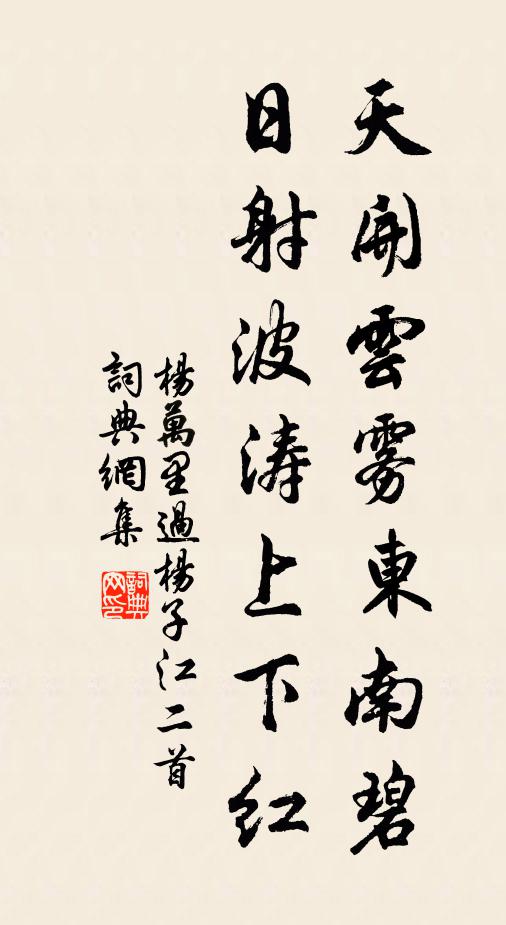 天開雲霧東南碧
日射波涛上下红
楊萬里過楊子江二首
詞典網集
詞典网印